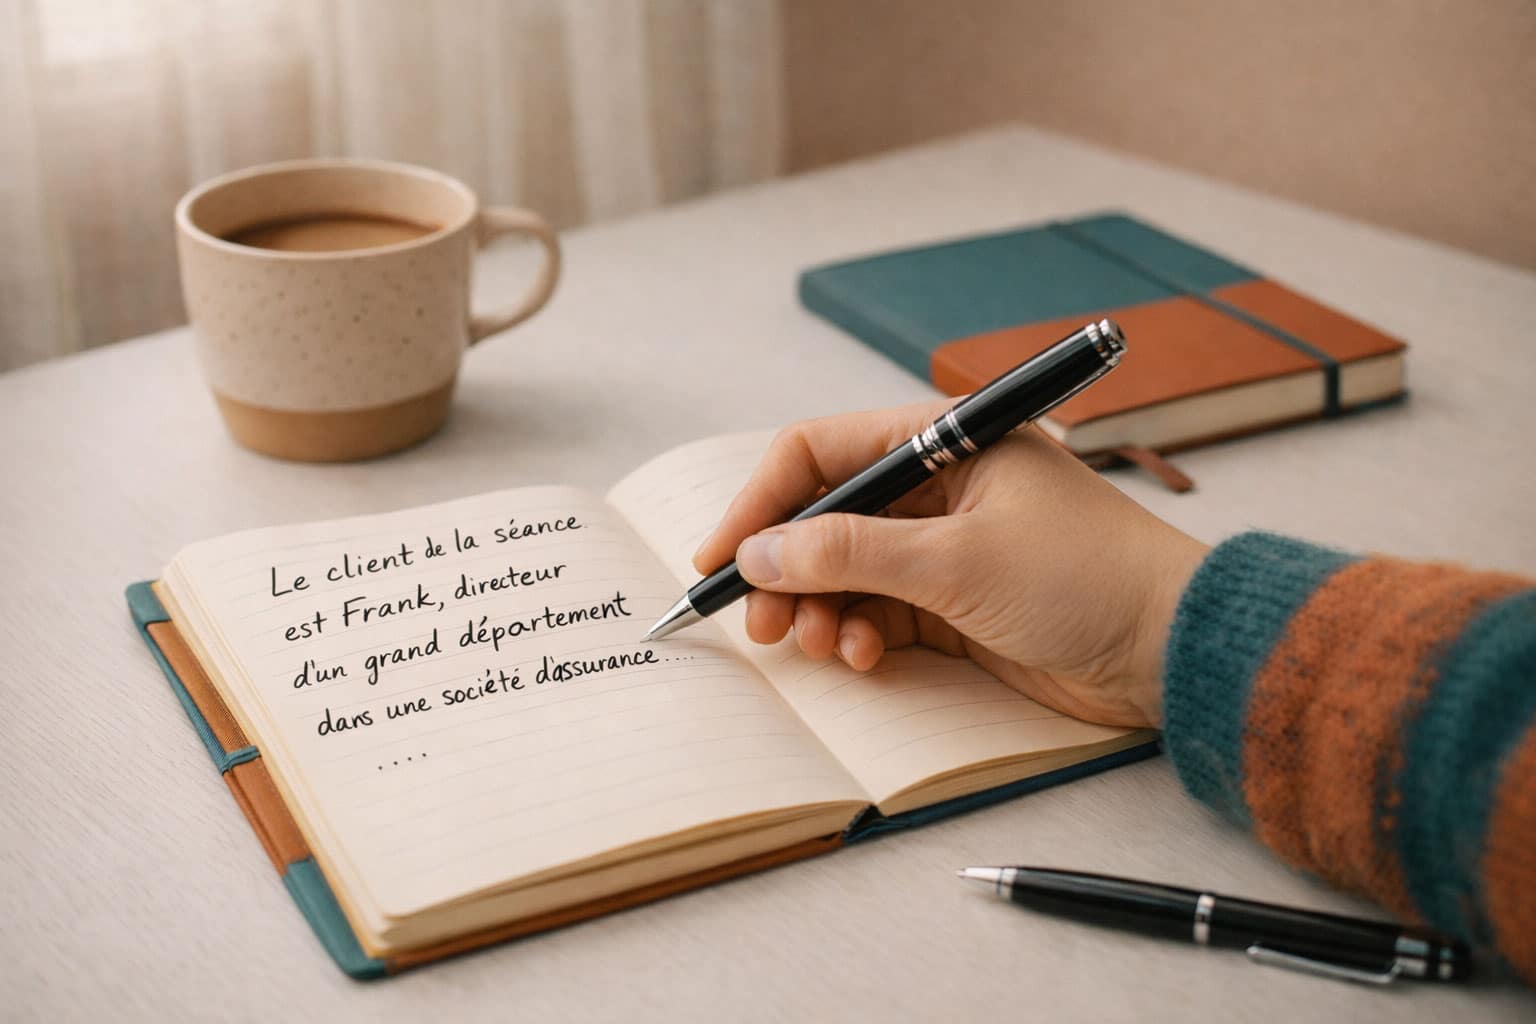 Le client de la séance
est Frank, directeur
d'un grand département
dans une société d'assurance....
....